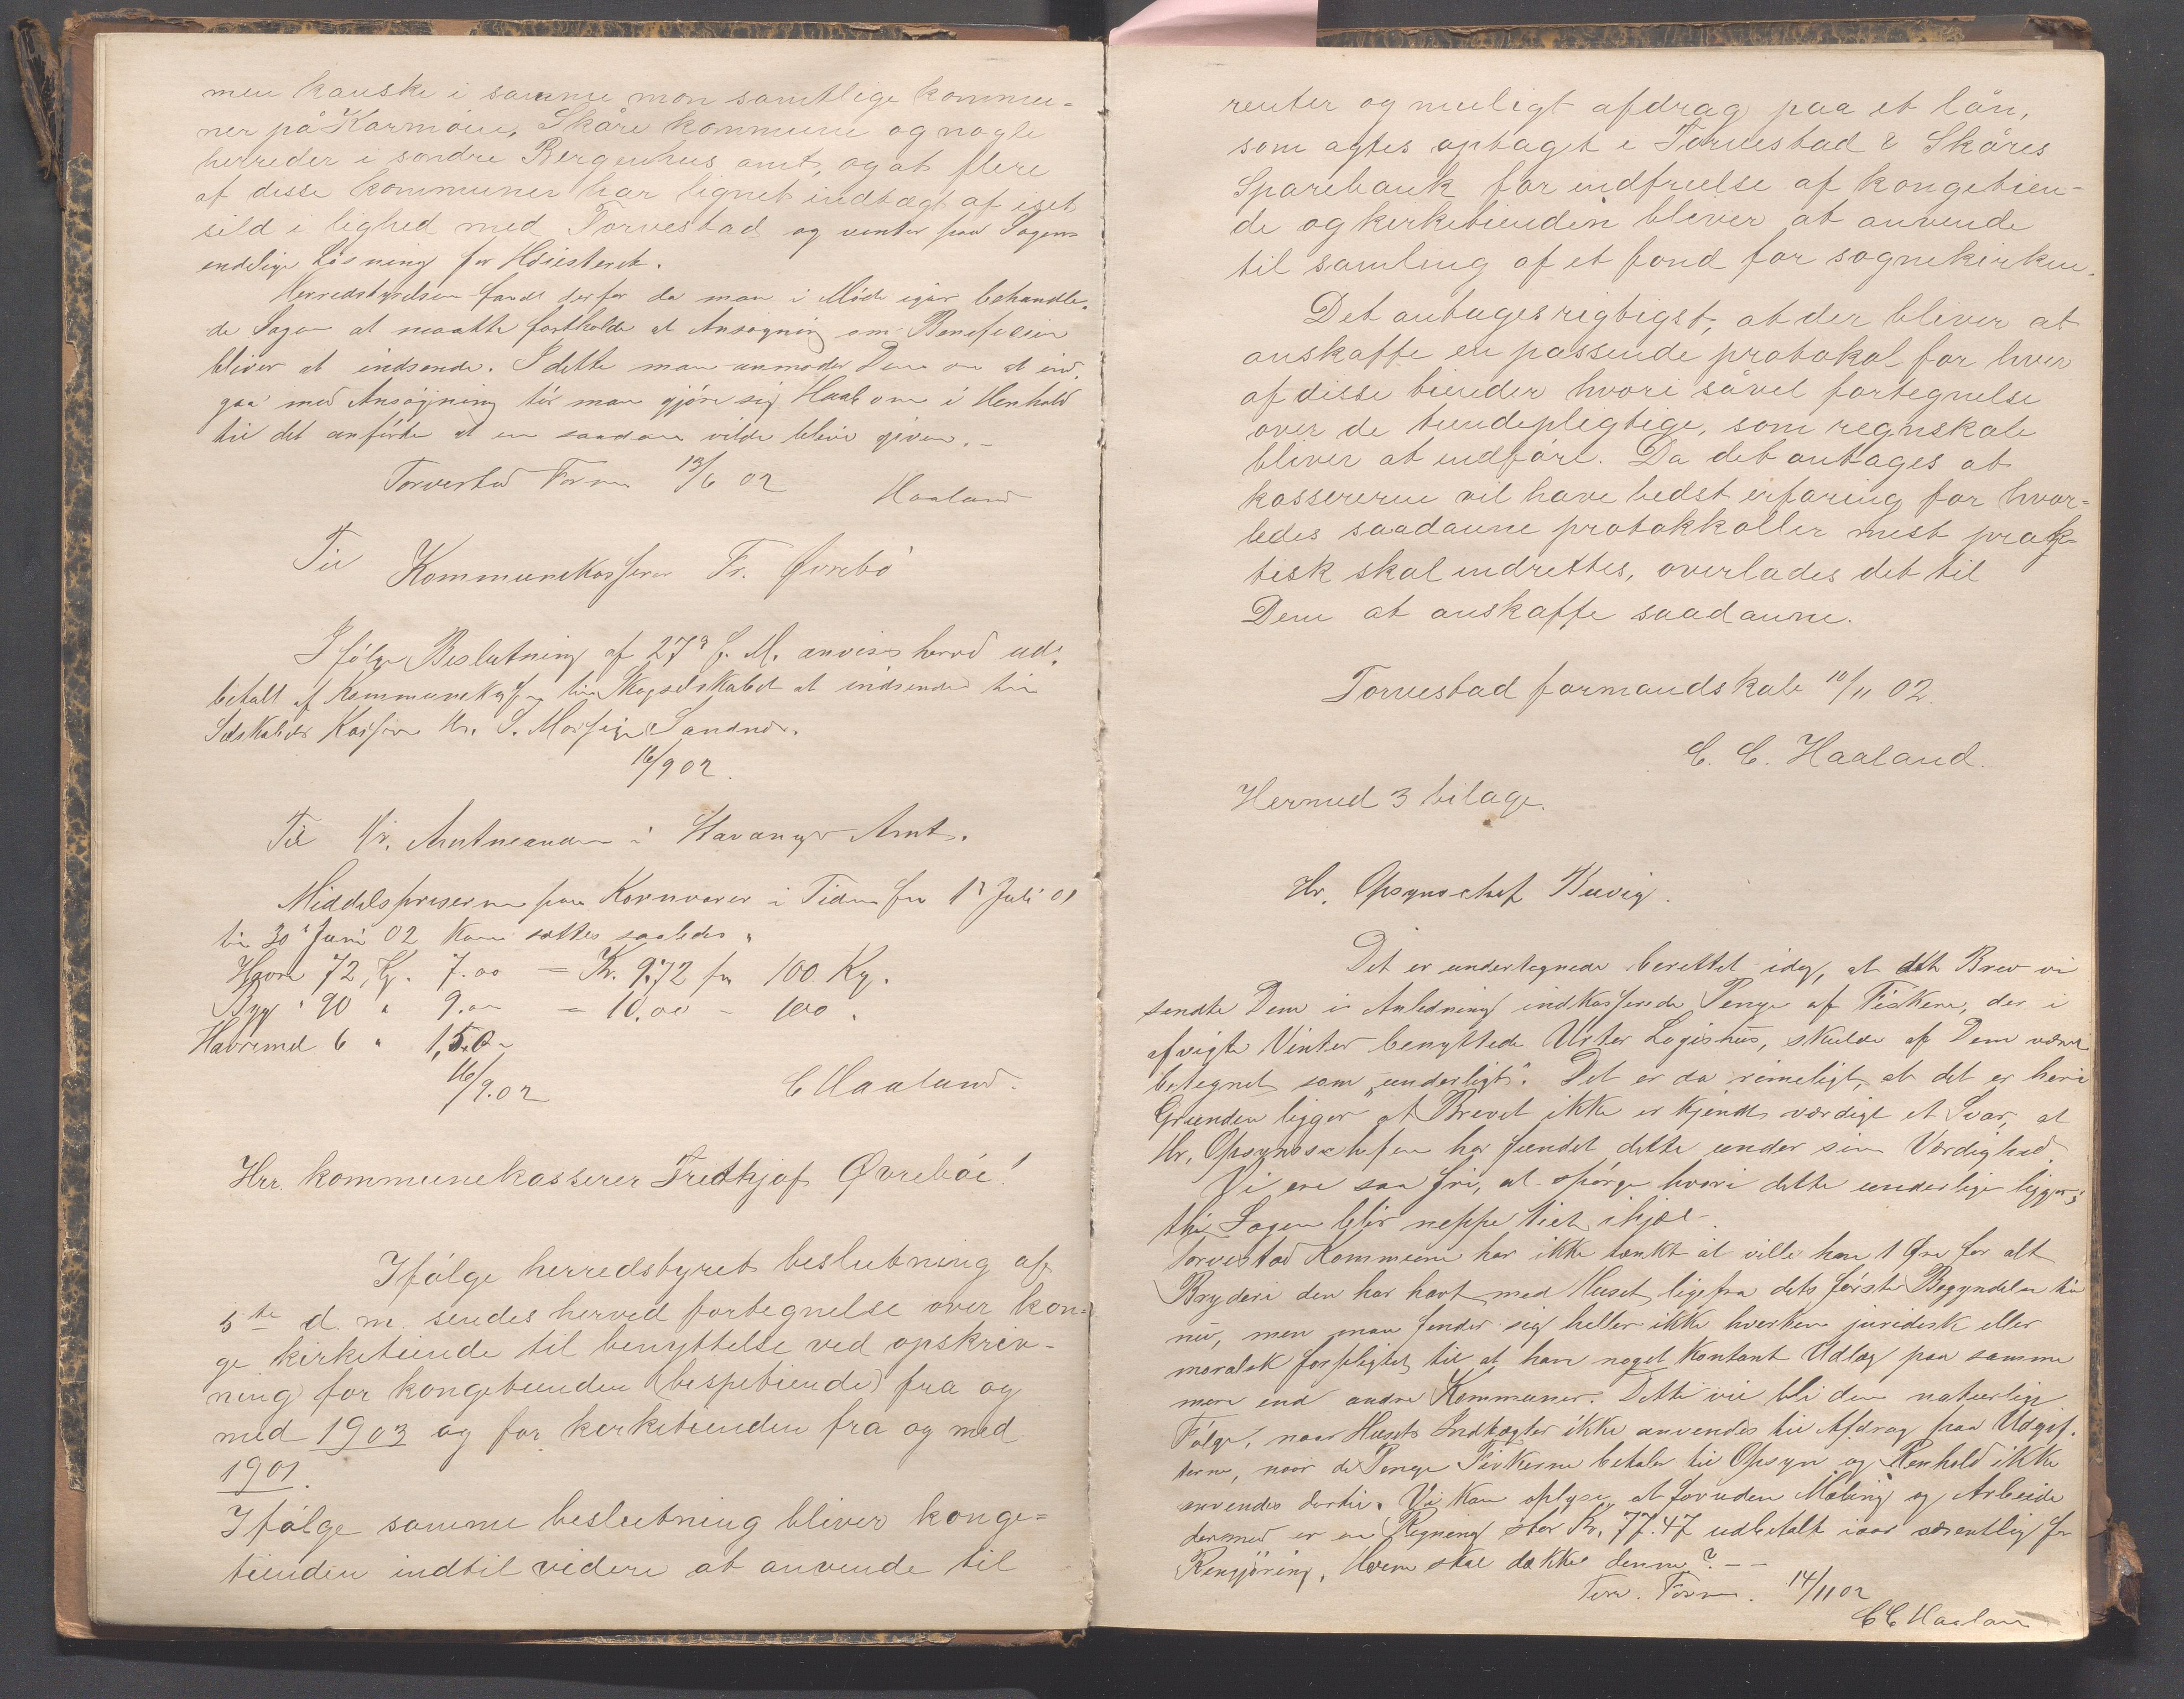 men kanske i samme mon samtlige kommu-
ner på Karmøen, Skåre kommune og nogle
herreder i søndre Bergenhus amt, og at flere
af disse kommuner har lignet indtægt af iset
sild i lighed med Torvestad og venter paa Sagens
endelige Løsning for Høiesteret.
Herredstyrelsen fandt derfor da man i Møde igår behandle-
de Sagen at maatte fastholde at Ansøgning om Beneficium
bliver at indsende. I dette man anmoder Dem om at ind-
gaa med Ansøgning tør man gjøre sig Haab om i Henhold
til det anførte at en saadan vilde blive given. -
Torvestad Form 13/6 02
Haaland
Til
Kommunekasserer Fr. Øvrebø
Ifølge Beslutning af 27de f. M. anvises herved ud-
betalt af Kommunekassen til Skogselskabet at indsendes til
Selskabets Kasserer Hr. S. Sandnes.
16/9 02.
Til Hr. Amtmanden i Stavanger Amt.
Middelspriserne paa Kornvarer i Tiden fra 1ste Juli 01
til 30te Juni 02 kan sættes saaledes:
Havre 72 Kg. 7.00 = Kr. 9.72 pr 100 Kg.
Byg " 90 " 9.00 = 10.00 - 100 "
Havremel 6 " 1,50
16/9.02
C Haaland.
Hrr. kommunekasserer Fredtkjof Øvrebøe!
Ifølge herredstyrets beslutning af
5te d. m. sendes herved fortegnelse over kon-
ge kirketiende til benyttelse ved opskriv-
ning for kongetienden (bispetiende) fra og
med 1903 og for kirketienden fra og med
1901.
Ifølge samme beslutning bliver konge=
tienden indtil videre at anvende til
renter og muligt afdrag paa et lån,
som agtes optagt i Torvestad & Skåres
Sparebank for indfrielse af kongetien-
de og kirketienden bliver at anvende
til samling af et fond for sognekirken.
Det antages rigtigst, at der bliver at
anskaffe en passende protokol for hver
af disse tiender hvori såvel fortegnelse
over de tiendepligtige, som regnskab
bliver at indføre. Da det antages at
kassererne vil have bedst erfaring for hvor-
ledes saadanne protokkoller mest prak-
tisk skal indrettes, overlades det til
Dem at anskaffe saadanne.
Torvestad formandskab 10/11 02.
C. C. Haaland.
Hermed 3 bilage.
Hr. Opsynschef Buvig.
Det er undertegnede berettet idag, at dette Brev vi
sendte Dem i Anledning indkasserede Penge af Fiskere, der i
afvigte Vinter benyttede Urter Logishus, skulde af Dem være
betegnet som "underligt". Det er da rimeligt, at det er heri
Grunden ligger at Brevet ikke er kjendt værdigt et Svar, at
Hr. Opsynschefen har fundet dette under sin Værdighed.
Vi ere saa fri, at spørge hvori dette underlige ligger;
thi Sagen blir neppe tiet ihjel.
Torvestad Kommune har ikke tænkt at ville have 1 Øre for alt
Bryderi den har havt med Huset, lige fra dets første Begyndelse til
nu, men man finder sig heller ikke hverken juridisk eller
moralsk forpligtet til at have noget kontant Udlæg paa samme
mere end andre Kommuner. Dette vil bli den naturlige
Følge, naar Husets Indtægter ikke anvendes til Afdrag paa Udgif-
terne, naar de Penge Fiskerne betaler til Opsyn og Renhold ikke
anvendes dertil. Vi kan oplyse, at foruden Maling og Arbeide
dermed er en Regning stor Kr. 77.47 udbetalt iaar væsentlig for
Rengjøring. Hvem skal dække denne? - -
Torv. Form. 14/11 02
C C Haaland